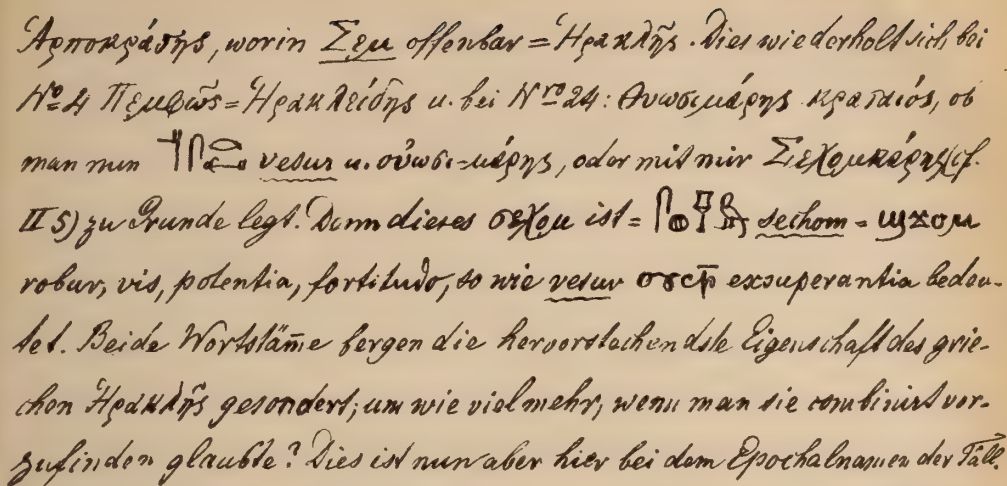 Ἁρποκράτης, worin Σεμ offenbar = Ἡρακλῆς. Dies wiederholt sich bei
Nº 4 Πεμφῶς = Ἡρακλείδης u. bei Nro 24: Ουωσιμάρης κραταιός, ob
man nun vesur u. οὐωσι-μάρης, oder mit mir Σεχομκάρης (cf.
II 5) zu Grunde legt. Denn dieses σεχομ ist = sechom = ϣϫοⲙ
robur, vis, potentia, fortitudo, so wie vesur ⲟⲩⲥⲣ̄ exsuperantia bedeu-
tet. Beide Wortstäm̄e bergen die hervorstechendste Eigenschaft des grie-
chen Ἡρακλῆς gesondert; um wie viel mehr, wenn man sie combinirt vor-
zufinden glaubte? Dies ist nun aber hier bei dem Epochalnamen der Fall.